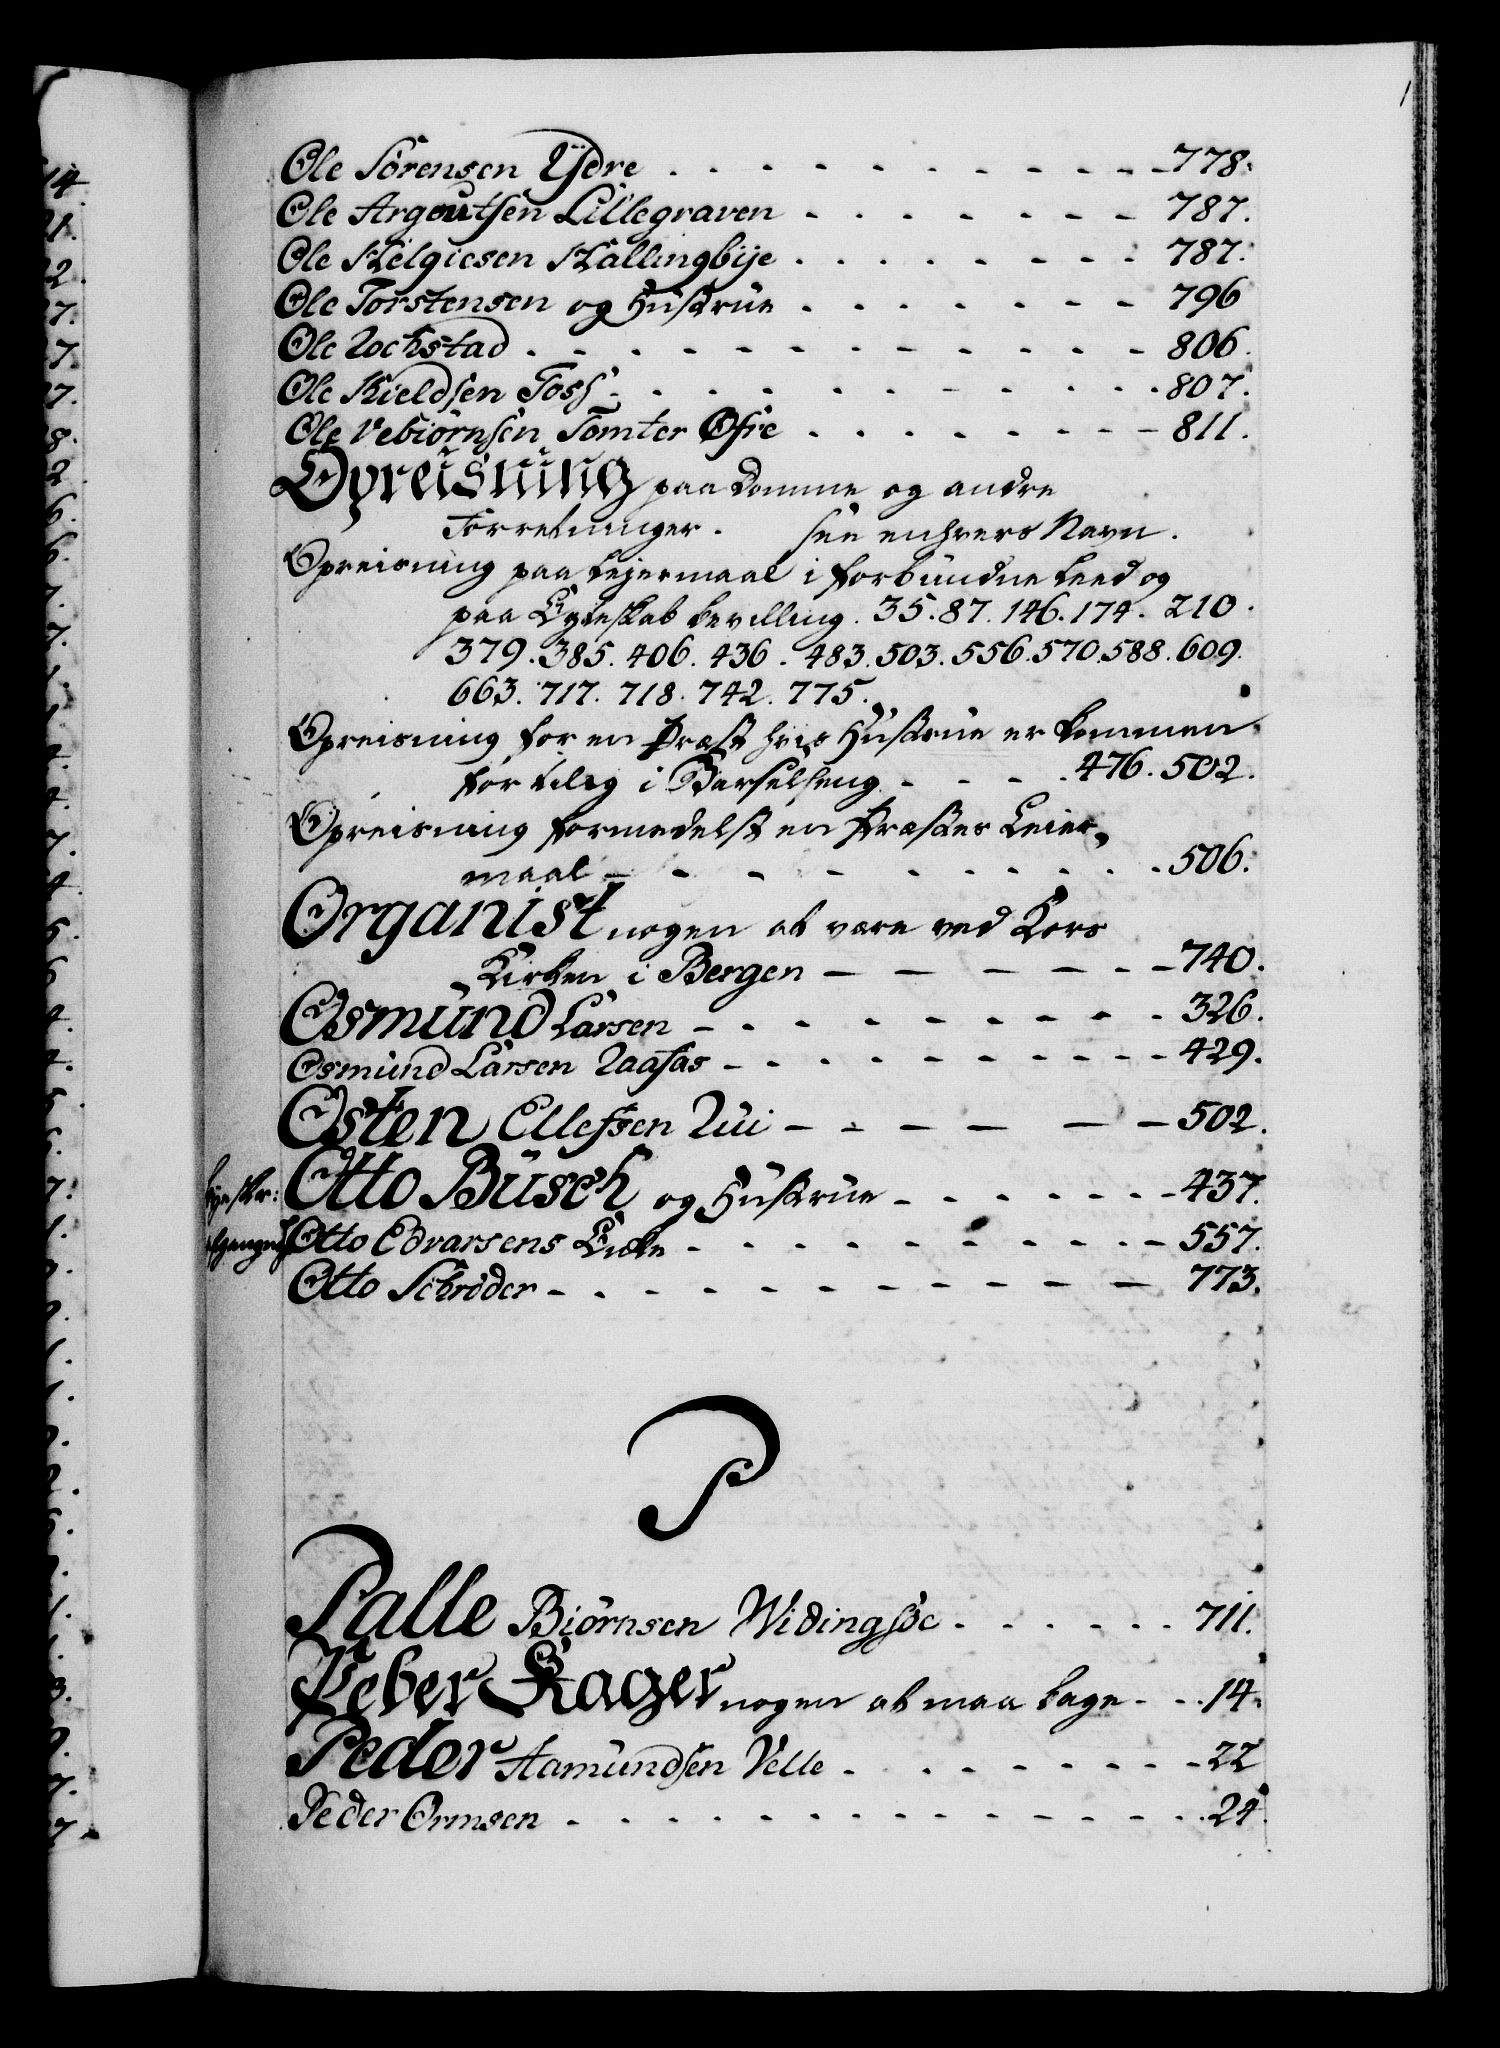 Ole Sörensen Ydre . . . . . . . . . . . 778.
Ole Argoutsen Lillegraven . . . . . . . 787.
Ole Helgiesen Hallingbÿe . . . . . . . . 787.
Ole Torstensen og Hustrue . . . . . . . 796
Ole Rochstad . . . . . . . . . . . . 806.
Ole Kieldsen Foss . . . . . . . . . . 807.
Ole Vebiörnsen Tomter Øfre . . . . . . . 811.
Opreisning paa Domme og andre
Forretninger. see enhvers Navn.
Opreisning paa Lejermaal i forbundne Leed og
paa Egteskab bevilling. 35. 87. 146. 174. 210.
379. 385. 406. 436. 483. 503. 556. 570. 588. 609.
663. 717. 718. 742. 775.
Opreisning for en Præst hvis Hustrue er kommen
for tilig i Barselseng . . . . 476. 502.
Opreisning formedelst en Præstes Leier-
maal . . . . . . . . . . 506.
Organist nogen at være ved Kors
Kirken i Bergen — — — — — 740.
Osmund Larsen . . . . . . . . . 326.
Osmund Larsen Raafas . . . . . . . . . 429.
Osten Ellefsen Rui — — — — — — 502.
Otto Büsch og Hustrue . . . . . . 437.
Otto Edvarsens Enke . . . . . . . . . 557.
Otto Schröder . . . . . . . . . . . 773.
P
Palle Biörnsen Widingsöe . . . . . . 711.
Peber Kager nogen at maa bage . . . 14.
Peder Aamundsen Velle . . . . . . . 22
Peder Ormsen . . . . . . . . . . . . 24.